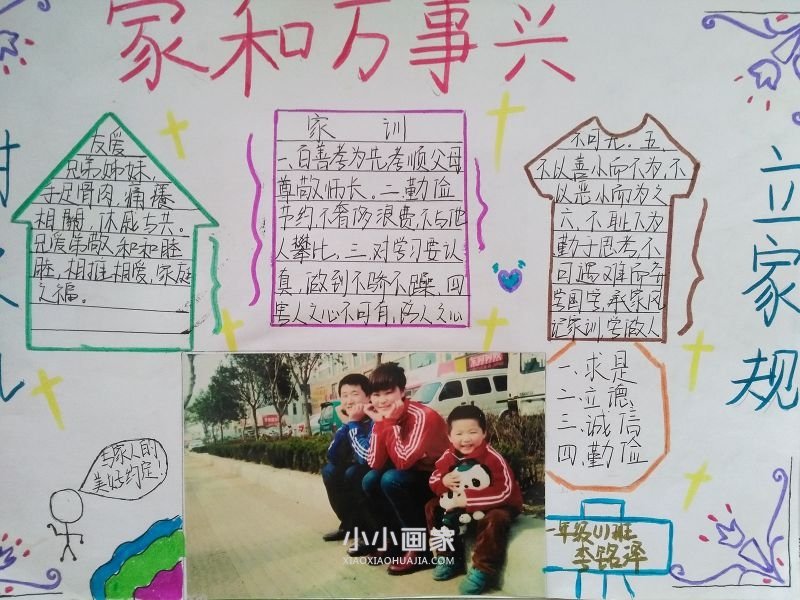 家和万事兴
友爱
兄弟姊妹，
手足骨肉，痛痒
相關，休戚与共。
兄爱弟敬，和和睦
睦，相推相爱，家庭
之福。
家 训
一、百善孝为先孝顺父母
尊敬师长。二、勤俭
节约不奢侈浪费，不与他
人攀比，三、对学习要认
真，做到不骄不躁，四、
害人之心不可有，防人之心
不可无。五、
不以善小而不为，不
以恶小而为之
六、不耻不为
勤于思考，不
可遇难而弃
学国学，承荣风
记家训，学做人
立家规
一、求是
二、立德
三、诚信
四、勤俭
与家人的
美好约定！
一年级(1)班
李铭泽
小小画家
XIAOXIAOHUAJIA.COM